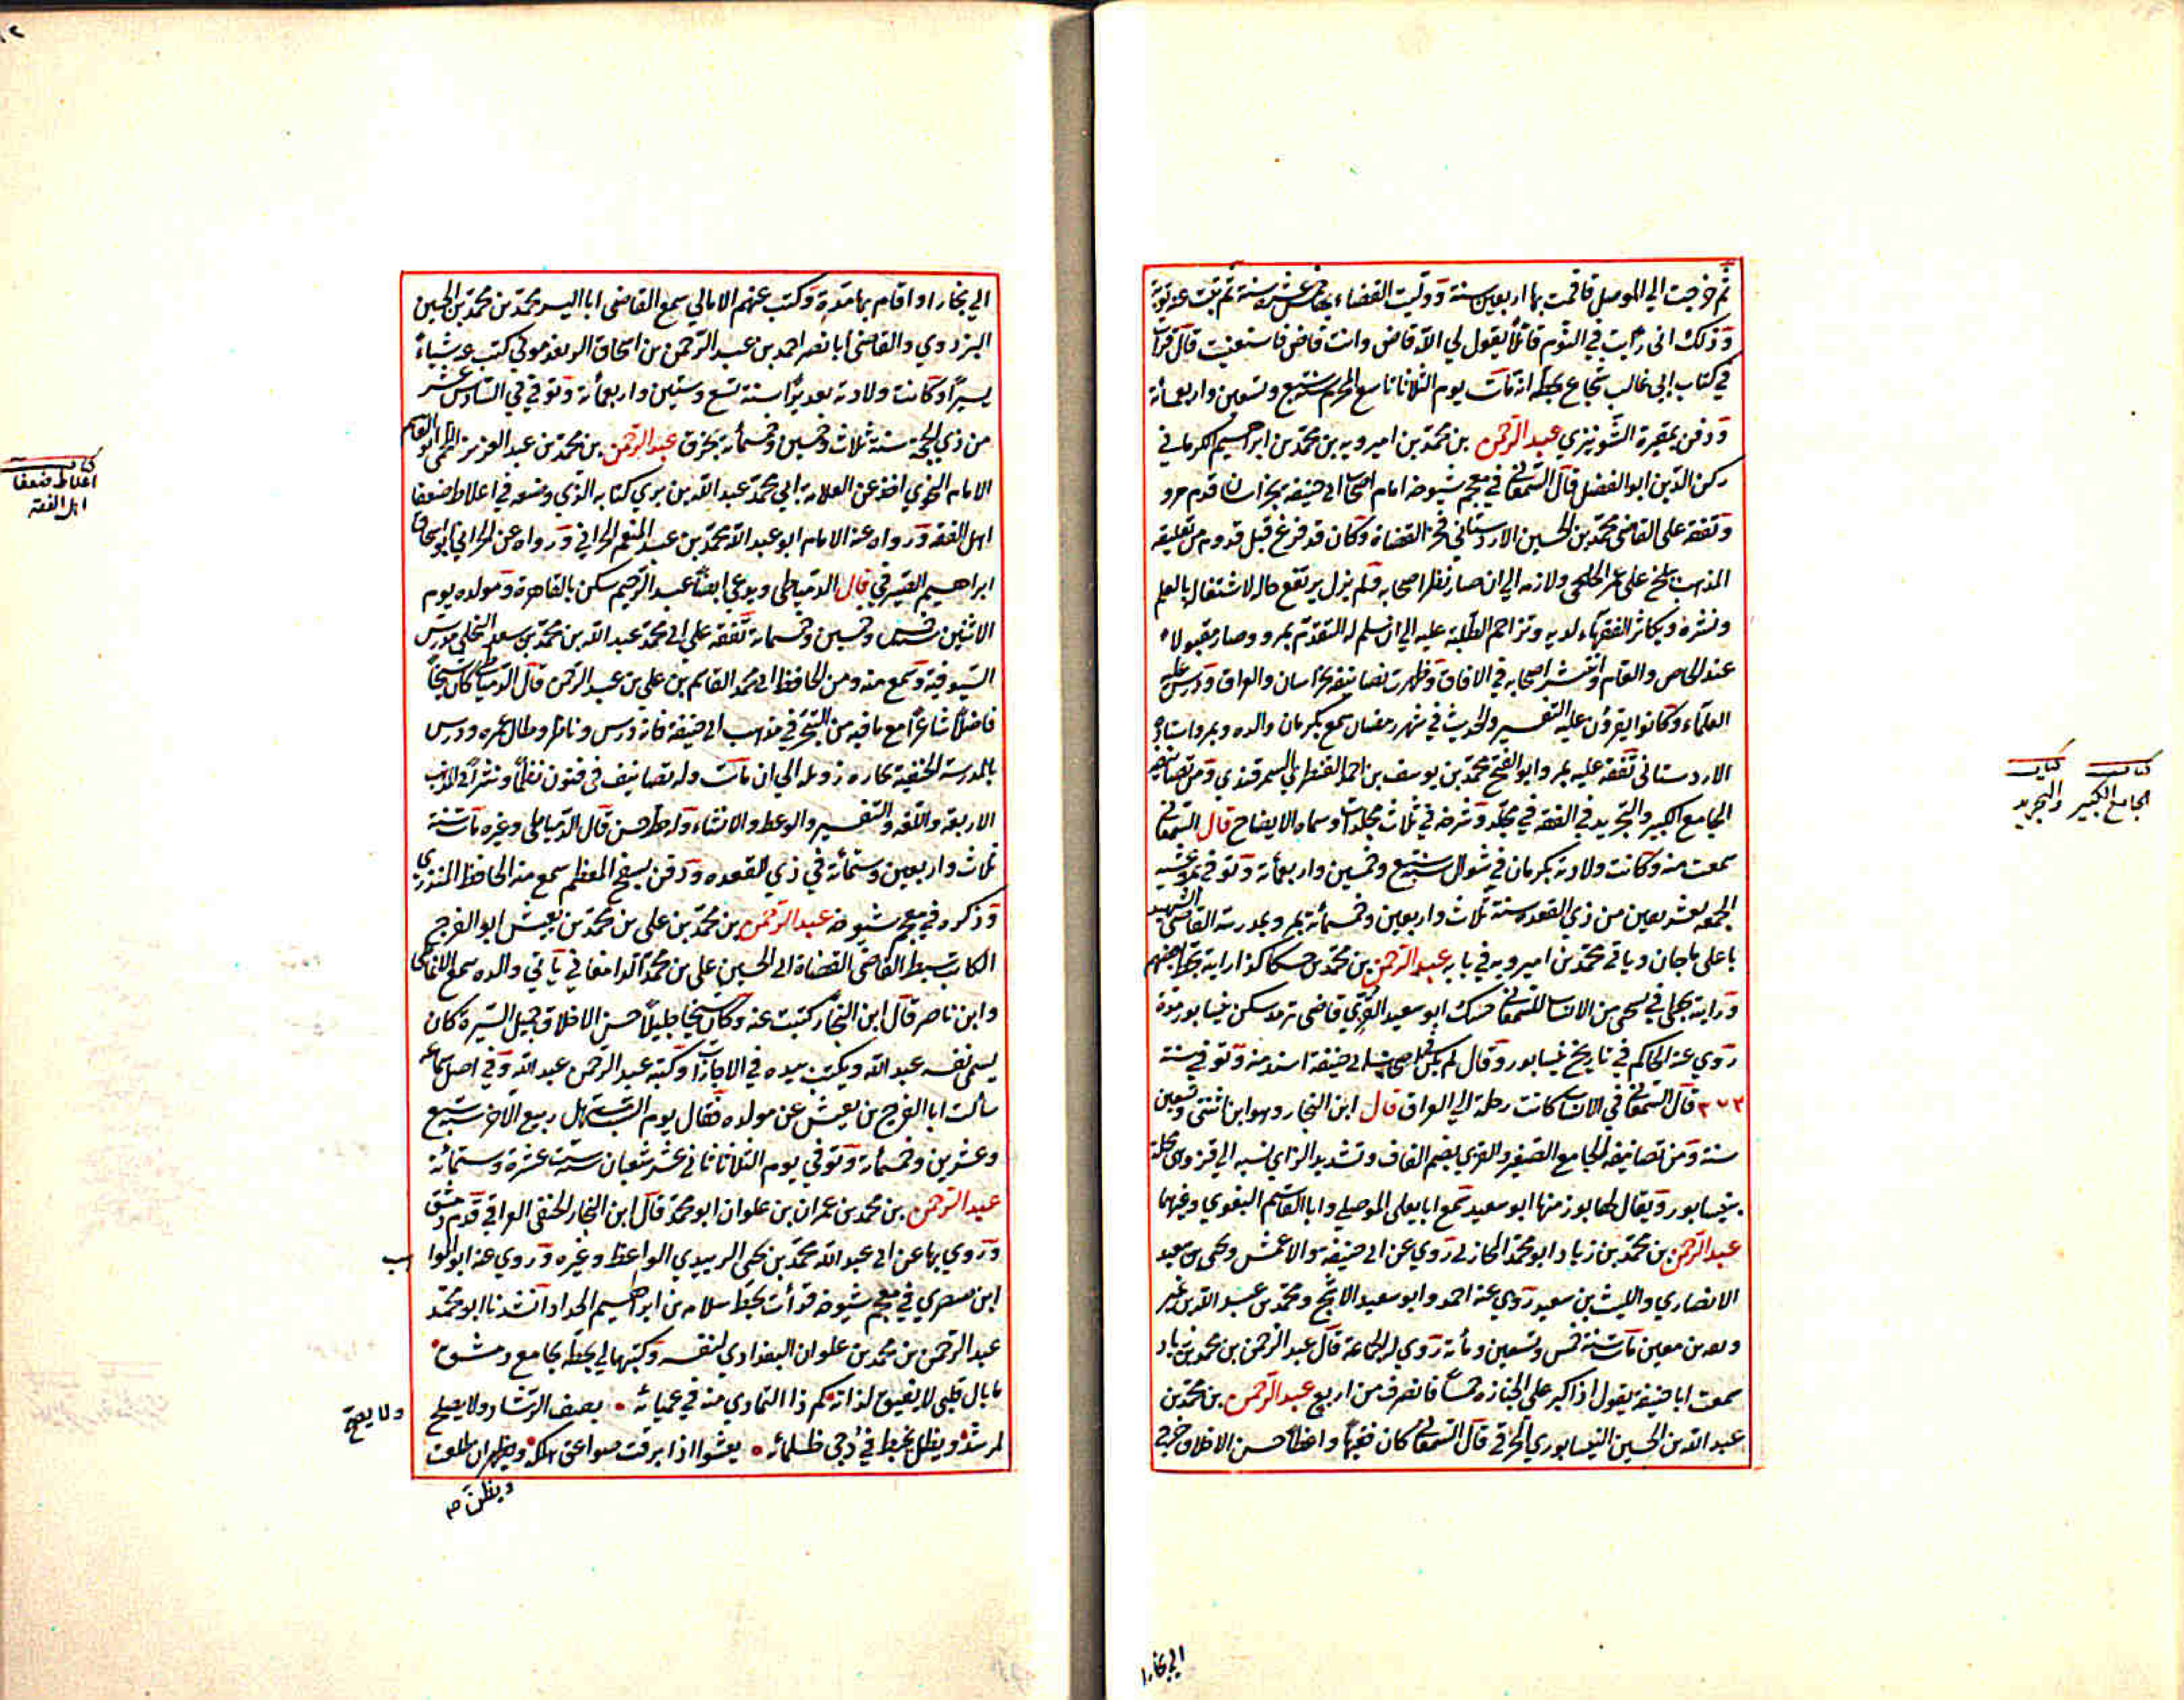 ثم خرجت الي الموصل فاقمت بها اربعين سنة ووليت القضاء بها خمس عشرة سنة ثم تبت عنه توبة
وذلك اني رايت في النوم قائلا يقول لي الا قاض وانت قاض فاستعفيت قال قرات
في كتاب ابي غالب شجاع بخطه انه مات يوم الثلاثا تاسع المحرم سنة سبع وتسعين واربعمائة
ودفن بمقبرة الشونيزي عبد الرحمن بن محمد بن اميرويه بن محمد بن ابراهيم الكرماني
ركن الدين ابو الفضل قال السمعاني في معجم شيوخه امام اصحاب ابي حنيفة بخراسان قدم مرو
وتفقه على القاضي محمد بن الحسين الارستاني فخر القضاة وكان قد فرغ قبل قدومه من تعليقه
المذهب ببلخ على عمر الخلجي ولازمه الي ان صار نظر اصحابه فلم يزل يرتفع حاله لاشتغاله بالعلم
ونشره وتكاثر الفقهاء لديه وتزاحم الطلبة عليه الي ان سلم له التقدم بمرو وصار مقبولا
عند الخاص والعام وانتشر اصحابه في الافاق وظهرت تصانيفه بخراسان والعراق ودرس عليه
العلماء وكانوا يقرؤن عليه التفسير والحديث في شهر رمضان سمع بكرمان والده وبمرو استاذه
الاردستاني تفقه عليه بمرو ابو الفتح محمد بن يوسف بن احمد القنطري السمرقندي ومن تصانيفه
الجامع الكبير والتجريد في الفقه في مجلد وشرحه في ثلاث مجلدات وسماه الايضاح قال السمعاني
سمعت منه وكانت ولادته بكرمان في شوال سنة سبع وخمسين واربعمائة وتوفي بمرو عشية
الجمعة لعشر بقين من ذي القعدة سنة ثلاث واربعين وخمسمائة بمرو بمدرسة القاضي الشهيد
باعلى ماجان وياتي محمد بن اميرويه في بابه عبد الرحمن بن محمد بن حسكا كذا رايته بخط بعضهم
ورايته بخطي في نسختي من الانساب للسمعاني حسك ابو سعيد القزي قاضي ترمذ سكن نيسابور مدة
روي عنه الحاكم في تاريخ نيسابور وقال لم يكن في اصحاب ابي حنيفة اسند منه وتوفي سنة
٣٧٣ قال السمعاني في الانساب كانت رحلة الي العراق قال ابن النجار وهو ابن اثنتي وتسعين
سنة ومن تصانيفه الجامع الصغير والقزي بضم القاف وتشديد الزاي نسبه الي قز وهي محلة
بنيسابور ويقال لها بوز منها ابو سعيد سمع ابا يعلى الموصلي وابا القاسم البغوي وغيرهما
عبد الرحمن بن محمد بن زياد ابو محمد المحاربي روي عن ابي حنيفة والاعمش ويحيى بن سعيد
الانصاري والليث بن سعيد روي عنه احمد وابو سعيد الاشج ومحمد بن عبد الله بن نمير
وبعد بن معين مات سنة خمس وتسعين ومائة روي له الجماعة قال عبد الرحمن بن محمد بن زياد
سمعت ابا حنيفة يقول اذا كبر على الجنازه خمسا فانصرف من اربع عبد الرحمن بن محمد بن
عبد الله بن الحسين النيسابوري الخرقي قال السمعاني كان فقيها واعظا حسن الاخلاق خرج
كتاب الجامع الكبير
كتاب والتجريد
الي بخارا
الي بخارا واقام بها مدة وكتب عنهم الامالي سمع القاضي ابا اليسر محمد بن محمد بن الحسين
البزدوي والقاضي ابا نصر احمد بن عبد الرحمن بن اسحاق الريغدموني كتب عنه شياء
يسيرا وكانت ولادته تقديرا سنة تسع وستين واربعمائة وتوفي في السادس عشر
من ذي الحجة سنة ثلاث وخمسين وخمسمائة بخرق عبد الرحمن بن محمد بن عبد العزيز اللخمي ابو القاسم
الامام النحوي اخذ عن العلامة ابي محمد عبد الله بن بري كتابه الذي وضعه في اغلاط ضعفا
اهل الفقه ورواه عنه الامام ابو عبد الله محمد بن عبد المنعم الحراني ورواه عن الحراني ابو اسحاق
ابراهيم الصيرفي قال الدمياطي ويدعي ايضا عبد الرحيم سكن بالقاهرة ومولده يوم
الاثنين سنة خمس وخمسين وخمسمائة تفقه على ابي محمد عبد الله بن محمد بن سعد البجلي مدرس
السيوفية وسمع منه ومن الحافظ ابي محمد القاسم بن علي بن عبد الرحمن قال الدمياطي كان شيخا
فاضلا شاعرا مع ما فيه من التبحر في مذهب ابي حنيفة فانه درس وناظر وطال عمره ودرس
بالمدرسة الحنفية بحارة زويله الي ان مات وله تصانيف في فنون نظما ونثرا في المذاهب
الاربعة واللغة والتفسير والوعظ والانشاء وله خط حسن قال الدمياطي وغيره مات سنة
ثلاث واربعين وستمائة في ذي القعده ودفن بسفح المقطم سمع منه الحافظ المنذري
وذكره في معجم شيوخه عبد الرحمن بن محمد بن علي بن محمد بن يعيش ابو الفرج
الكاتب سبط القاضي القضاة ابي الحسين علي بن محمد الدامغاني ياتي والده سمع الانماطي
وابن ناصر قال ابن النجار كتبت عنه وكان شيخا جليلا حسن الاخلاق جميل السيرة كان
يسمى نفسه عبد الله ويكتب بيده في الاجازات وكنيه عبد الرحمن عبد الله وفي اصل سماعه
سالت ابا الفرج بن يعيش عن مولده فقال يوم السبت سابع هل ربيع الاخر سنة سبع
وعشرين وخمسمائة وتوفي يوم الثلاثا ثاني عشر شعبان سنة ست عشرة وستمائة
عبد الرحمن بن محمد بن عمران بن علوان ابو محمد قال ابن النجار الحنفي العراقي قدم دمشق
وروي بها عن ابي عبد الله محمد بن يحيى الزبيدي الواعظ وغيره وروي عنه ابو الموا هب
ابن صصري في معجم شيوخه قرات بخط سلامة بن ابراهيم الحداد انشدنا ابو محمد
عبد الرحمن بن محمد بن علوان البغدادي لنفسه وكتبها لي بخطه بجامع دمشق
ما بال قلبي لا يفيق لذاته كم ذا التمادي منه في عميائه يصف الرشاد ولا يصلح
لرشده ويظل يخبط في دجى ظلمائه يعشوا اذا برقت صواعق
كتاب اغلاط ضعفا
اهل الفقه
ولا يصح
ويظن